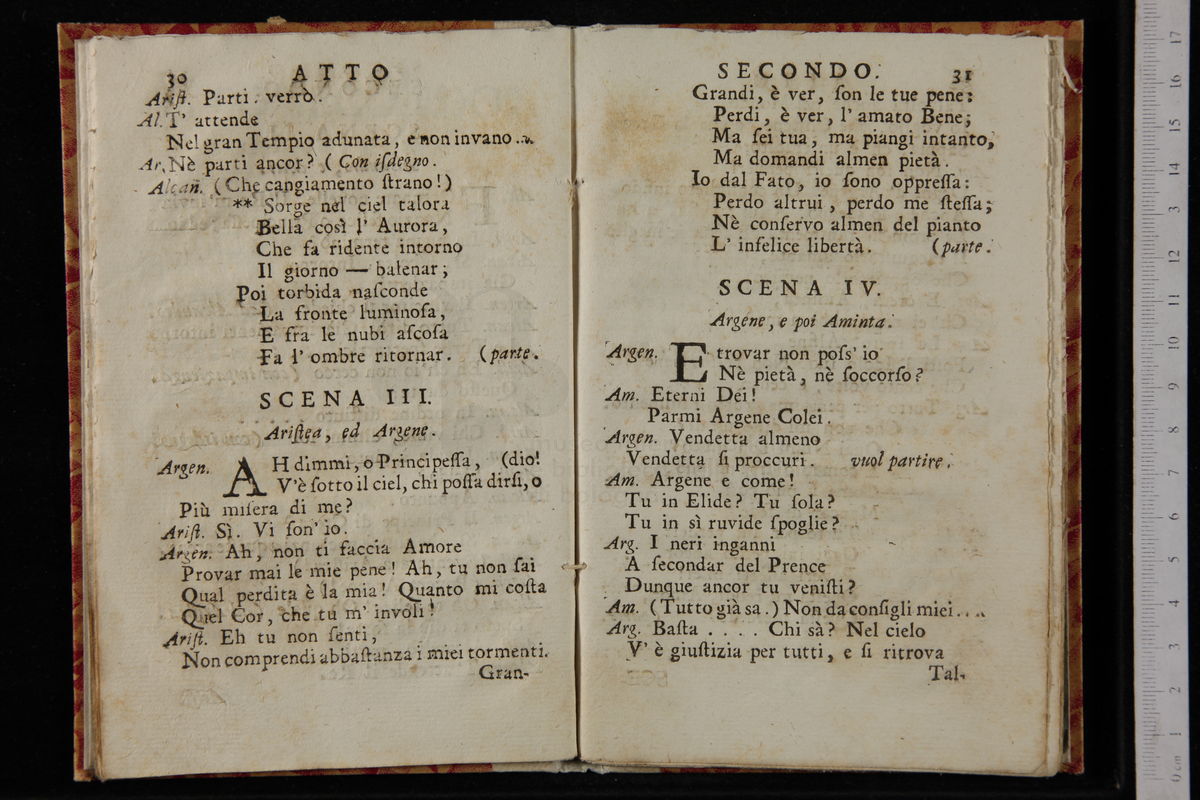 30 ATTO
Arist. Parti. verrò.
Al. T' attende
Nel gran Tempio adunata, e non invano...
Ar. Nè parti ancor? (Con isdegno.
Alcan. (Che cangiamento strano!)
** Sorge nel ciel talora
Bella così l' Aurora,
Che fa ridente intorno
Il giorno — balenar;
Poi torbida nasconde
La fronte luminosa,
E fra le nubi ascosa
Fa l' ombre ritornar. (parte.
SCENA III.
Aristea, ed Argene.
Argen. AH dimmi, o Principessa, (dio!
V'è sotto il ciel, chi possa dirsi, o
Più misera di me?
Arist. Sì. Vi son' io.
Argen. Ah, non ti faccia Amore
Provar mai le mie pene! Ah, tu non sai
Qual perdita è la mia! Quanto mi costa
Quel Cor, che tu m' involi!
Arist. Eh tu non senti,
Non comprendi abbastanza i miei tormenti.
Gran-
SECONDO. 31
Grandi, è ver, son le tue pene:
Perdi, è ver, l' amato Bene;
Ma sei tua, ma piangi intanto,
Ma domandi almen pietà.
Io dal Fato, io sono oppressa:
Perdo altrui, perdo me stessa;
Nè conservo almen del pianto
L' infelice libertà. (parte.
SCENA IV.
Argene, e poi Aminta.
Argen. E trovar non poss' io
Nè pietà, nè soccorso?
Am. Eterni Dei!
Parmi Argene Colei.
Argen. Vendetta almeno
Vendetta si proccuri. vuol partire.
Am. Argene e come!
Tu in Elide? Tu sola?
Tu in sì ruvide spoglie?
Arg. I neri inganni
A secondar del Prence
Dunque ancor tu venisti?
Am. (Tutto già sa.) Non da consigli miei....
Arg. Basta .... Chi sà? Nel cielo
V' è giustizia per tutti, e si ritrova
Tal-